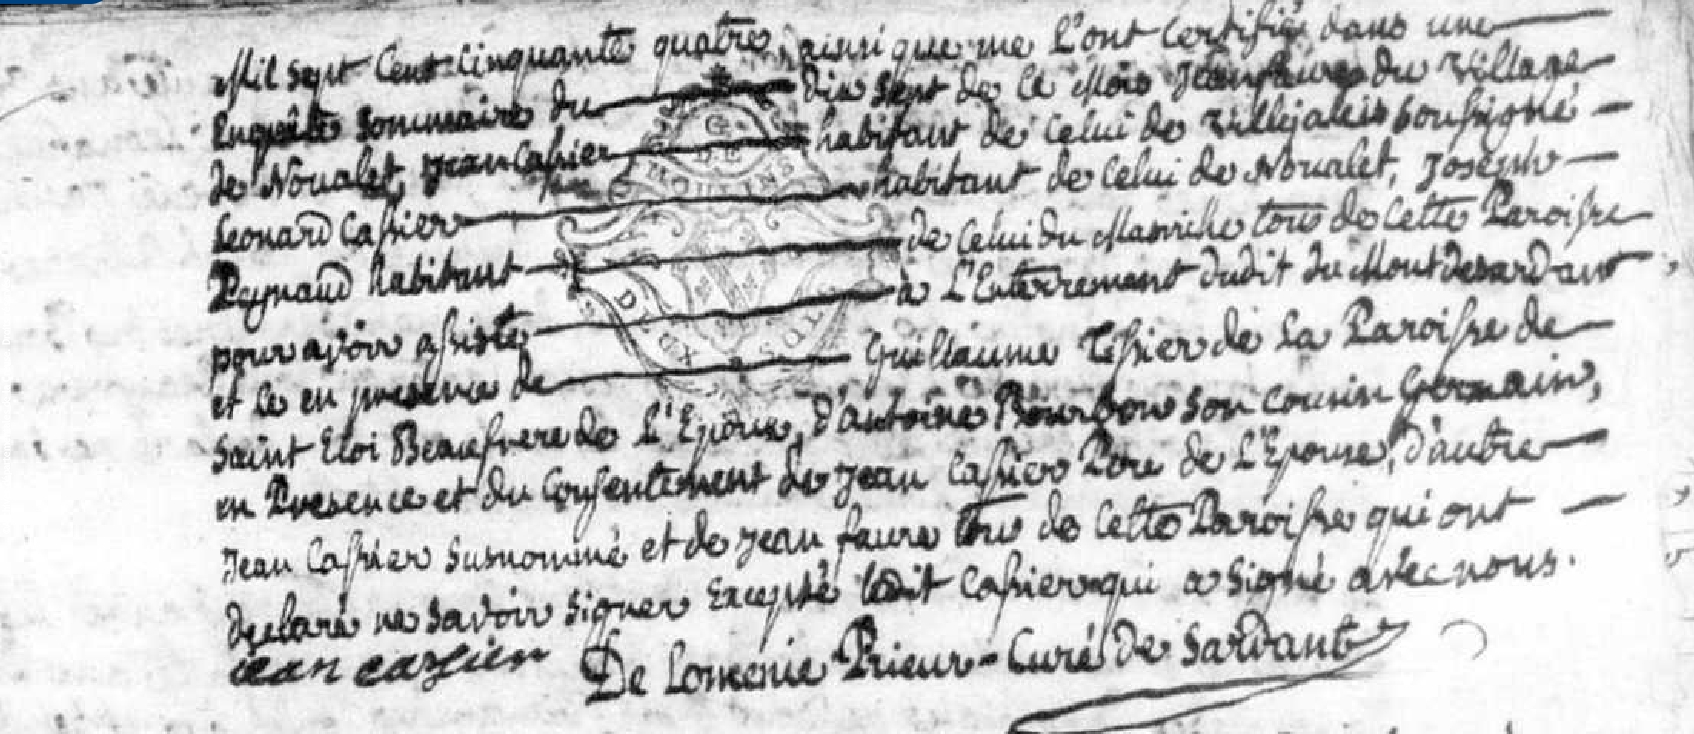 Mil sept Cent Cinquante quatre, ainsi que me l'ont Certifié dans une
Enquête Sommaire du dix sept de Ce Mois Jean faure du Village
de Noualet, Jean Cassier habitant de Celui de Villejaleix soussigné
Leonard Cassier habitant de Celui de Noualet, Joseph
Peynaud habitant de Celui du Masviche tous de Cette Paroisse
pour avoir assisté à L'Enterrement dudit du Mont desardant,
et Ce en presence de Guillaume Tissier de La Paroisse de
Saint Eloi Beaufrere de L'Epoux, d'antoine Bourbon Son Cousin Germain,
en Presence et du Consentement de Jean Cassier Pere de L'Epouse, d'autre
Jean Cassier Susnommé et de Jean faure tous de Cette Paroisse qui ont
declaré ne Savoir Signer Excepté ledit Cassier qui a Signé avec nous.
jean cassier De Lomenie Prieur-Curé de Sardant
G DE
MOULINS
DEUX SOLS